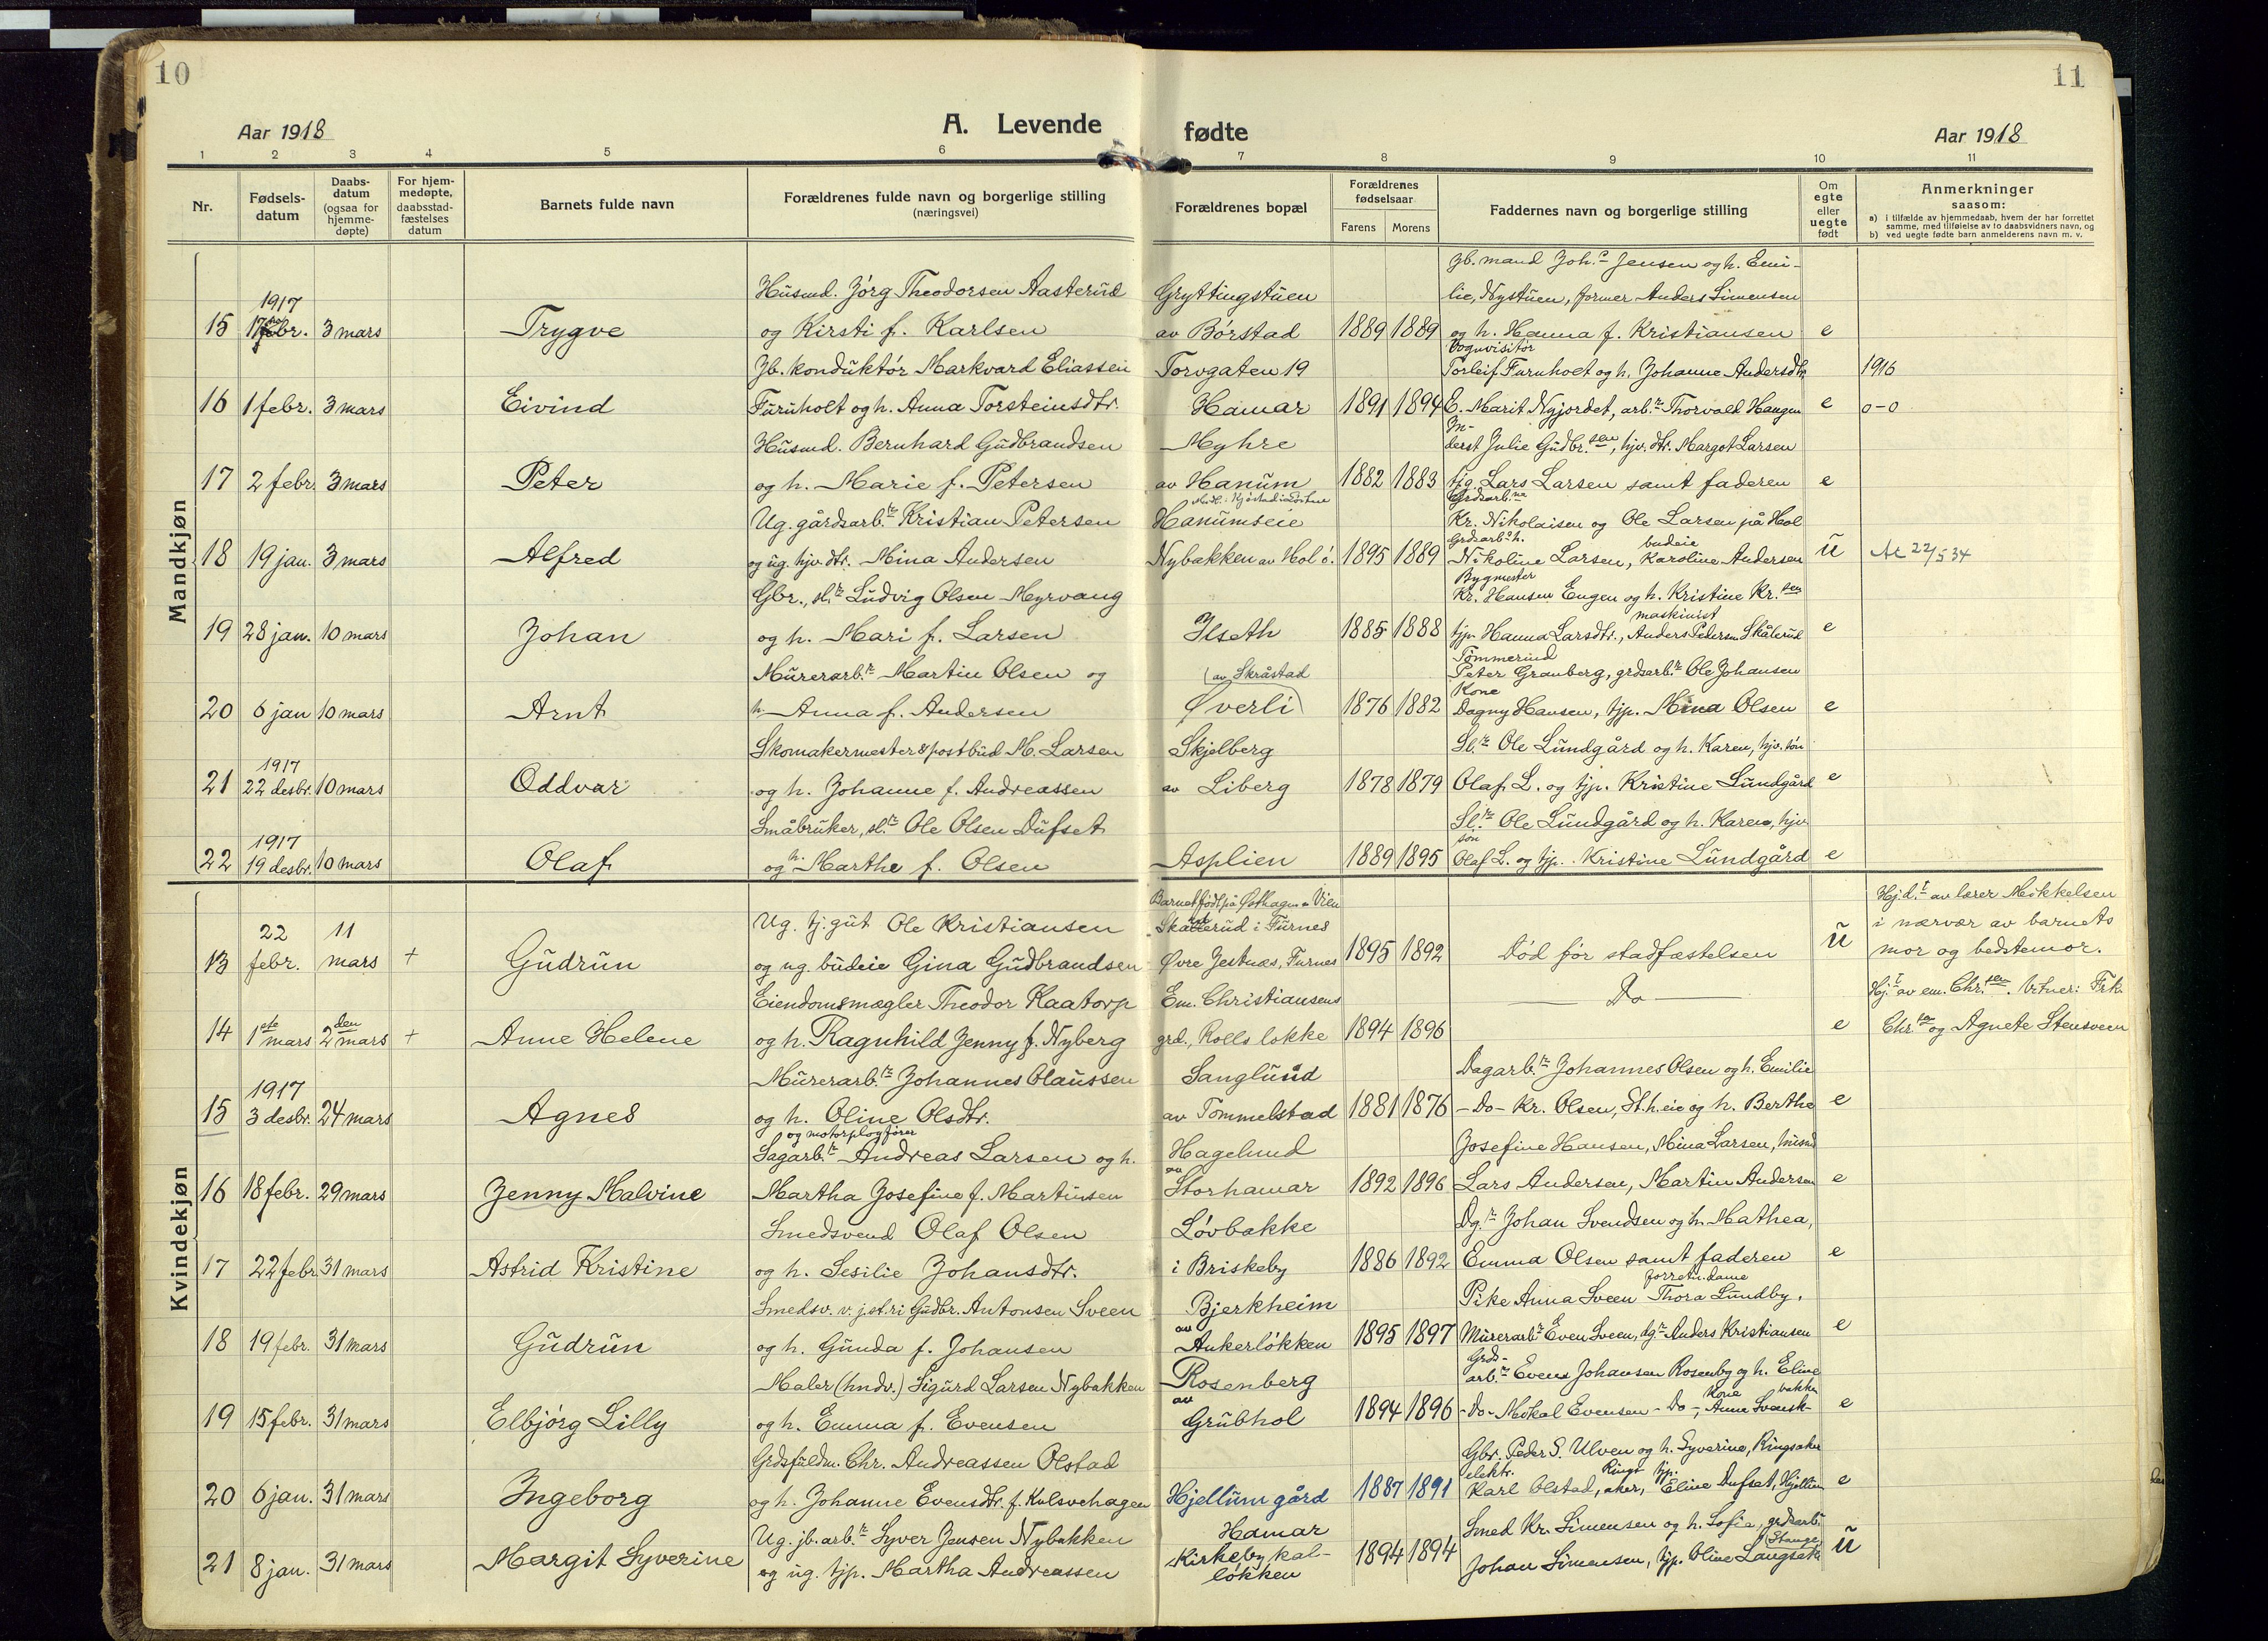 10
11
Aar 1918
A. Levende fødte
Aar 1918
1 2 3 4 5 6 7 8 9 10 11
Nr.
Fødsels-
datum
Daabs-
datum
(ogsaa for
hjemme-
døpte)
For hjem-
medøpte,
daabsstad-
fæstelses
datum
Barnets fulde navn
Forældrenes fulde navn og borgerlige stilling
(næringsvei)
Forældrenes bopæl
Forældrenes
fødselsaar
Farens Morens
Faddernes navn og borgerlige stilling
Om
egte
eller
uegte
født
Anmerkninger
saasom:
a) i tilfælde av hjemmedaab, hvem der har forrettet
samme, med tilføielse av to daabsvidners navn, og
b) ved uegte fødte barn anmelderens navn m. v.
Mandkjøn
Jb. mand Joh.s Jensen og h. Emi-
Husmd. Jörg Theodorsen Aasterud Gryttingstuen lie, Nystuen, former Anders Simensen
1917
15 3 mars Trygve og Kirsti f. Karlsen av Börstad 1889 1889 og h. Hanna f. Kristiansen e
Vognvisitör
Jb. konduktör Markvard Eliassen Torvgaten 19 Torleif Furuholt og h. Johanne Andersdtr. 1916
16 1 febr. 3 mars Eivind Furuholt og h. Anna Torsteinsdtr. Hamar 1891 1894 E. Marit Nyjordet, arb.r Thorvald Haugen e 0-0
In-
Husmd. Bernhard Gudbrandsen Myhre derst Julie Gudbr.sen, hjv. dtr. Margot Larsen
17 2 febr. 3 mars Peter og h. Marie f. Petersen av Hanum 1882 1883 tjg. Lars Larsen samt faderen e
Grdsarb.ne
Ug. gårdsarb.r Kristian Petersen Hanumseie Kr. Nikolaisen og Ole Larsen på Hol
Grdsarb.s h. budeie
18 19 jan. 3 mars Alfred og ug. hjv. dtr. Mina Andersen Nybakken av Hol ö. 1895 1889 Nikoline Larsen, Karoline Andersen ü At 22/5 34
Bygmester
Gbr., sl.r Ludvig Olsen Myrvang Kr. Hansen Engen og h. Kristine Kr.sen
maskinist
19 28 jan. 10 mars Johan og h. Mari f. Larsen Ilseth 1885 1888 tjp. Hanna Larsdtr., Anders Pedersen Skålerud e
Tömmermd
Murerarb.r Martin Olsen og (av Skråstad Peter Granberg, grdsarb.r Ole Johansen
Kone
20 6 jan 10 mars Arnt h. Anna f. Andersen Øverli 1876 1882 Dagny Hansen, tjp. Mina Olsen e
Skomakermester & postbud M. Larsen Skjelberg Sl.r Ole Lundgård og h. Karen, hjv. sön
1917
21 22 desbr. 10 mars Oddvar og h. Johanne f. Andreassen av Liberg 1878 1879 Olaf L. og tjp. Kristine Lundgård e
Småbruker, sl.r Ole Olsen Dufset Sl.r Ole Lundgård og h. Karen, hjv.
1917 sön
22 19 desbr. 10 mars Olaf og h. Marthe f. Olsen Asplien 1889 1895 Olaf L. og tjp. Kristine Lundgård e
Kvindekjøn
Hj.d.t av lærer Mikkelsen
Ug. tj.gut Ole Kristiansen i Furnes i nærvær av barnets
13 22 febr. 11 mars + Gudrun og ug. budeie Gina Gudbrandsen Øvre Jestnæs, Furnes 1895 1892 Död för stadfæstelsen ü mor og bedstemor.
Eiendomsmægler Theodor Kaatorp Em. Christiansens Do Hj.t av em. Chr.sen. Vitner: Frk.
14 1ste mars 2den mars + Anne Helene og h. Ragnhild Jenny f. Nyberg grd., Rolls lokke 1894 1896 e Chr.sen og Agnete Stensveen
Murerarb.r Johannes Olaussen Sanglund Dagarb.r Johannes Olsen og h. Emilie
1917
15 3 desbr. 24 mars Agnes og h. Oline Olsdtr. av Tommelstad 1881 1876 -Do- Kr. Olsen, St.h.eie og h. Berthe e
og motorplogfører
Sagarb.r Andreas Larsen og h. Hagelund Josefine Hansen, Mina Larsen, husmd
16 18 febr. 29 mars Jenny Malvine Martha Josefine f. Martinsen av Storhamar 1892 1896 Lars Andersen, Martin Andersen e
Smedsvend Olaf Olsen Lövbakke Dg.r Johan Svendsen og h. Mathea,
17 22 febr 31 mars Astrid Kristine og h. Sesilie Johansdtr. i Briskeby 1886 1892 Emma Olsen samt faderen e
forretn. dame
Smedsv. v. j.st.ri Gudbr. Antonsen Sveen Bjerkheim Pike Anna Sveen Thora Lundby,
18 19 febr. 31 mars Gudrun og h. Gunda f. Johansen av Ankerlökken 1895 1897 Murerarb.r Even Sveen, dg.r Anders Kristiansen e
Grds-
Maler (hndv.) Sigurd Larsen Nybakken Rosenberg arb.r Even Johansen Rosenberg og h. Eline
Kone bakken
19 15 febr. 31 mars Elbjörg Lilly og h. Emma f. Evensen av Grubhol 1894 1896 -Do- Mikal Evensen -Do-, Anna Svensk- e
Grdsfuldm. Chr. Andreassen Olstad Gbr. Peder S. Ulven og h. Syverine, Ringsaker
elektr. Rings tjp.
20 6 jan. 31 mars Ingeborg og h. Johanne Evensdtr. f. Kulsvehagen Hjellum gård 1887 1891 Karl Olstad, aker, Eline Dufset, Hjellum e
Ug. jb. arb.r Syver Jensen Nybakken Hamar Smed Kr. Simensen og h. Sofie, grdsarb.r
(Stange)
21 8 jan. 31 mars Margit Syverine og ug. tjp. Martha Andreassen Kirkeby kal-
lökken 1894 1894 Johan Simensen, tjp. Oline Langseth ü